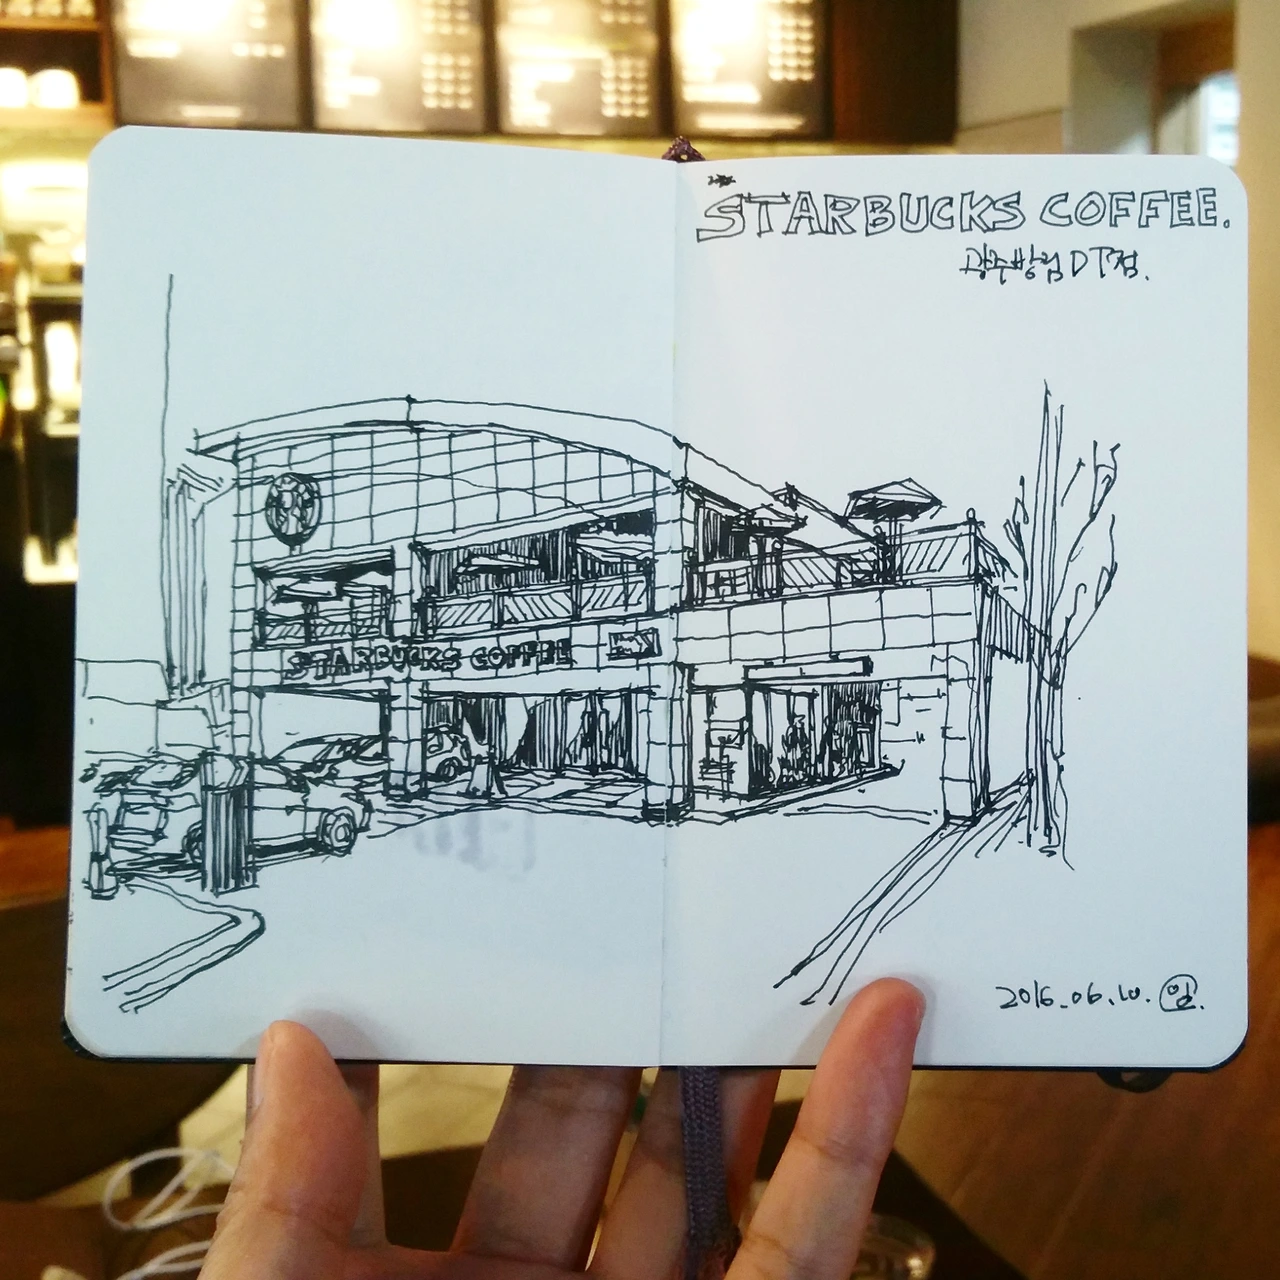 STARBUCKS COFFEE.
광주방림DT점.
STARBUCKS COFFEE
2016.06.10.